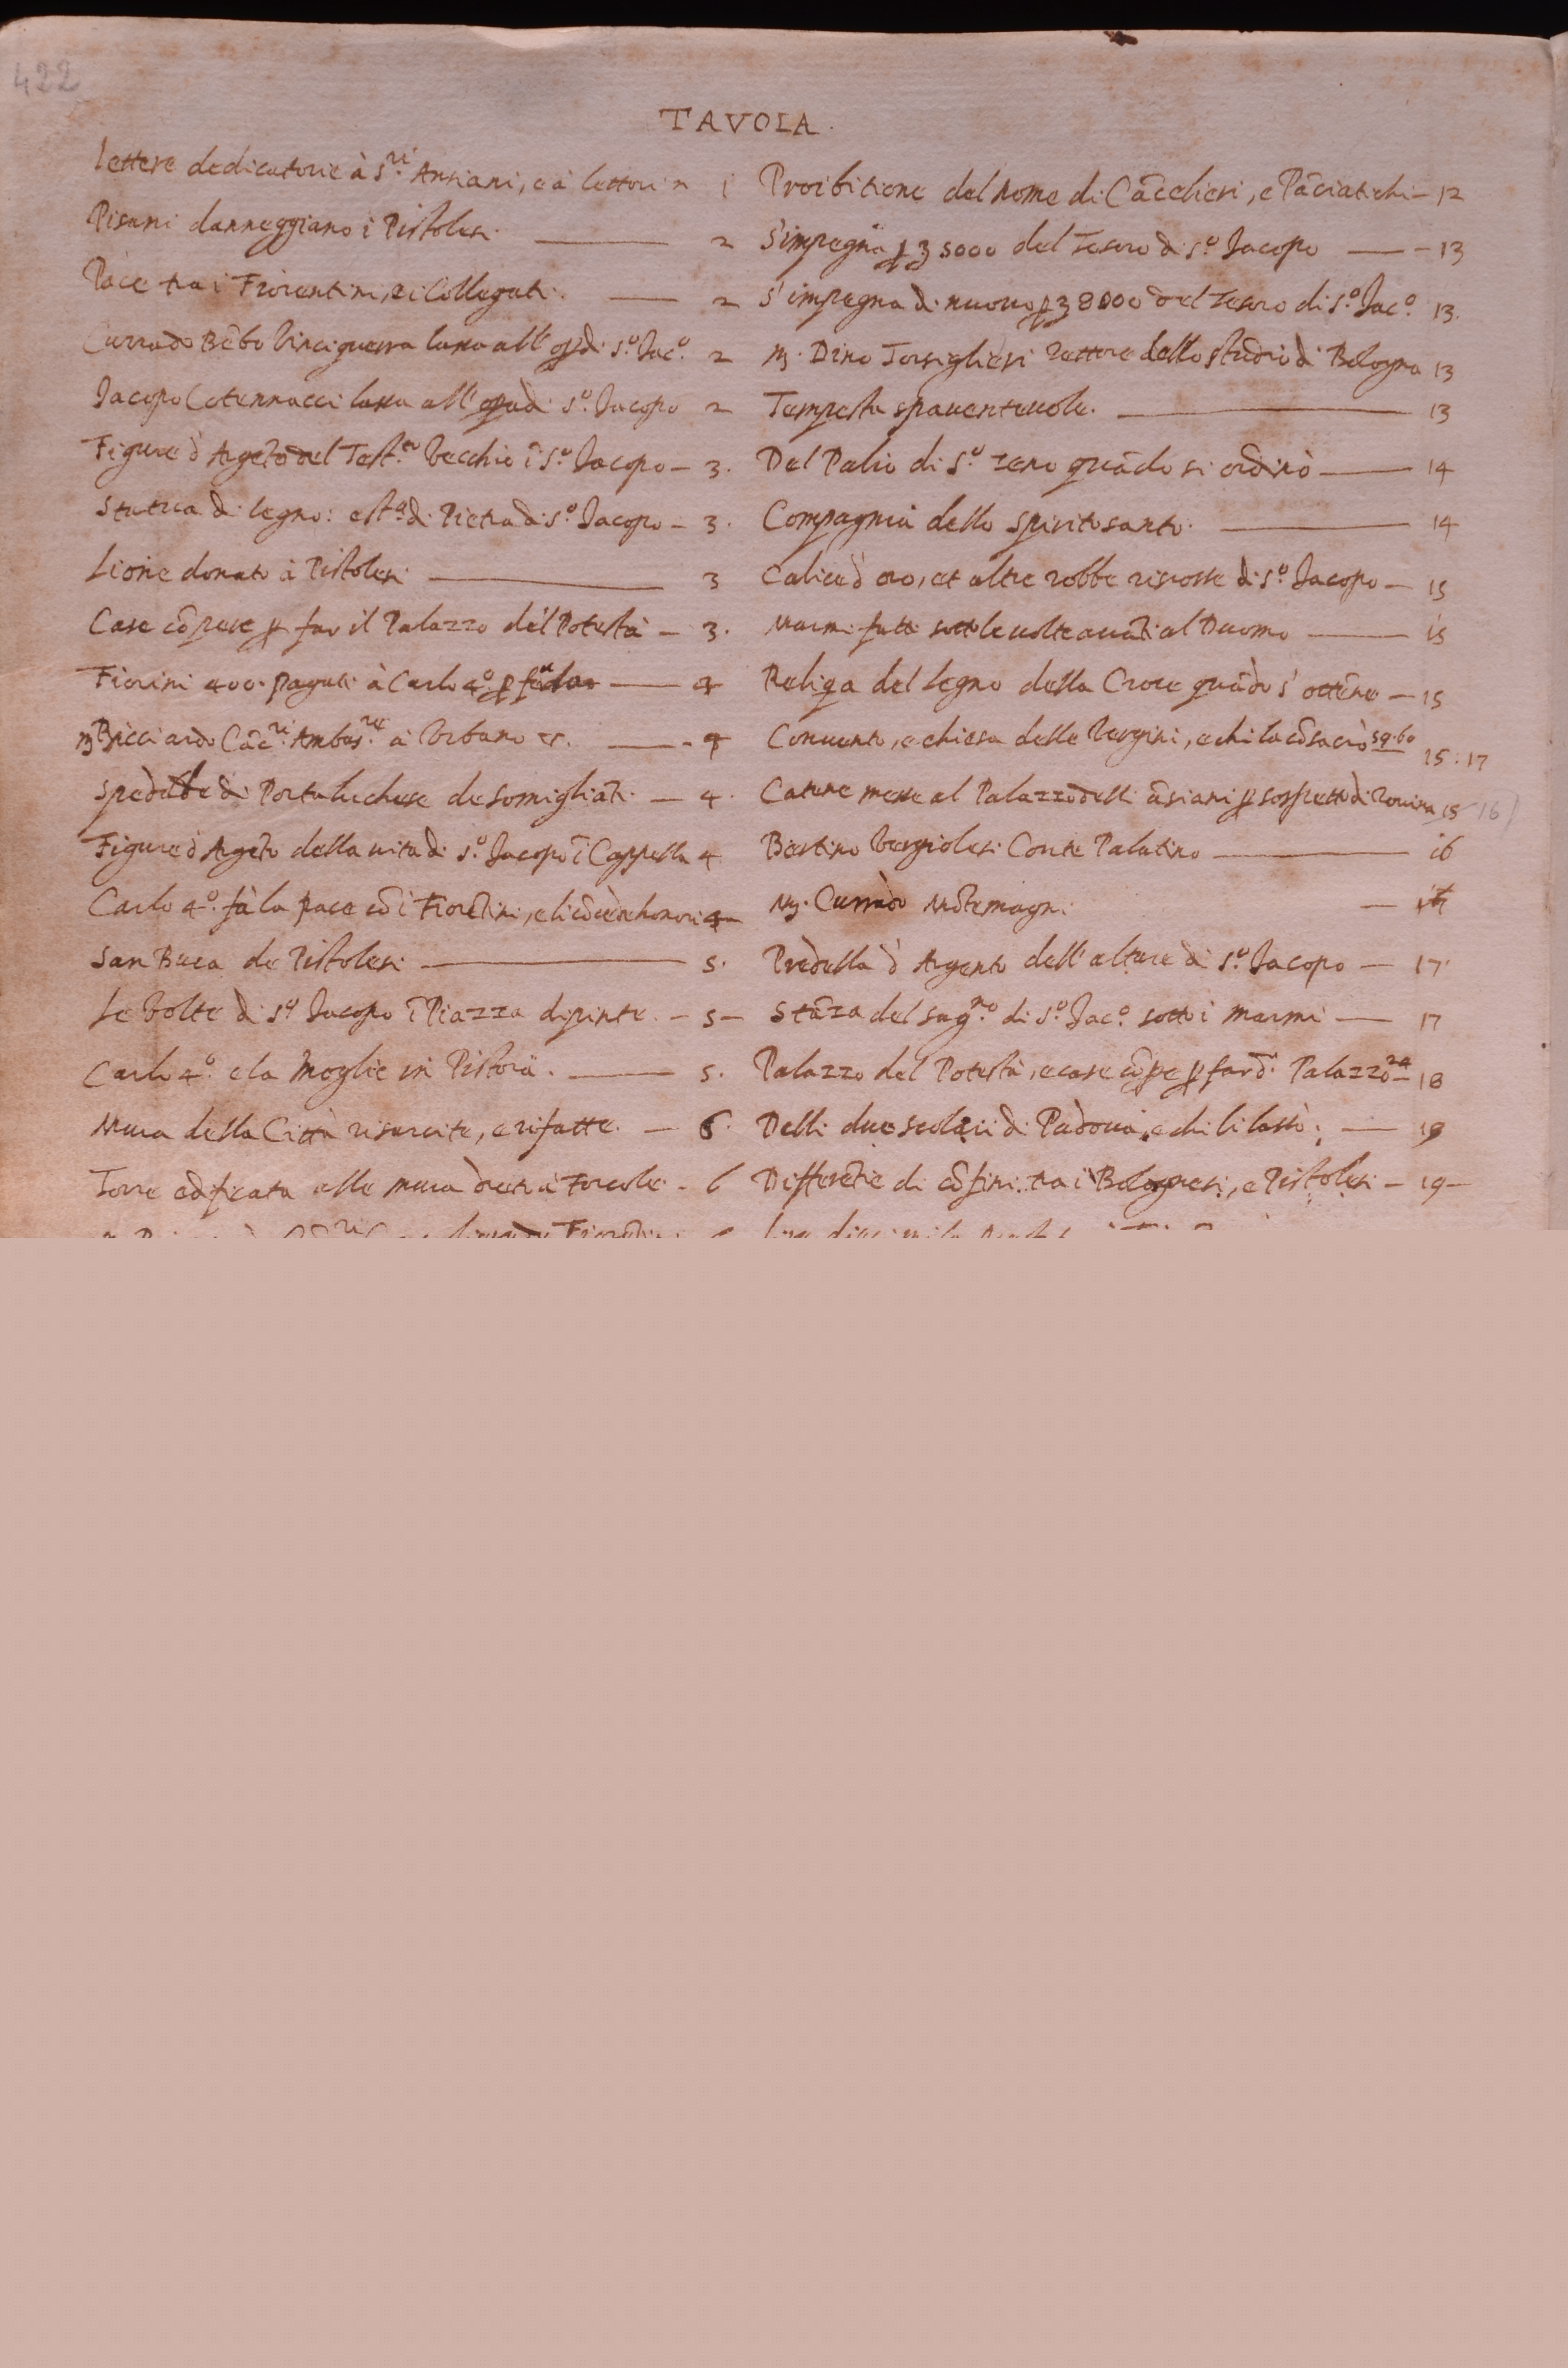 422
TAVOLA.
Lettere dedicatorie à S.ri Anziani, e à lettori 1
Pisani danneggiano i Pistolesi. 2
Pace tra i Fiorentini, e i Collegati. 2
Currado Bēbo Vinciguerra lassa all' op.di S.o Jac.o 2
Jacopo Cotennacci lassa all' opa di S.o Jacopo 2
Figure d Argēto del Test.to Vecchio ī S.o Jacopo – 3.
Statua di legno: e st.a di Pietra di S.o Jacopo – 3.
Lione donato à Pistolesi 3
Case cōpere p far il Palazzo del Potestà – 3.
Fiorini 400. pagati à Carlo 4.o p 4
Ricciardo Cāc.ri Ambas.re à Urbano 4
Spedale di Porta luchese de somigliāti – 4.
Figure d Argēto della vita di S.o Jacopo ī Cappella 4
Carlo 4.o fà la pace cō i Fiorētini, e li cōcede honori 4
San Buca de Pistolesi 5.
Le Volte di S.o Jacopo ī Piazza dipinte. – 5 –
Carlo 4.o e la Moglie in Pistoia. 5.
Mura della Città risarcite, e rifatte. – 6.
Torre edificata alle mura drēto à Forcole. – 6
Proibitione del nome di Cācelieri, e Pāciatichi – 12
S'impegna p 5000 del Tesoro di S.o Jacopo – 13
S'impegna di nuovo p 8000 del Tesoro di S.o Jac.o 13.
M. Dino Torsiglieri Rettore dello studio di Bologna 13
Tempesta spaventevole. 13
Del Palio di S.o Zeno quādo si ordinò 14
Compagnia dello spirito santo. 14
Calice d oro, et altre robbe riscosse di S.o Jacopo – 15
Marmi fatti sotto le volte avāti al Duomo 15
Reliqa del Legno della Croce quādo s' ottēne – 15
Convento, e chiesa delle Vergini, e chi la cōsacrò 59.60 15:17
Catene messe al Palazzo delli āsiani p sospetto di rovina 15 16
Bertino Vergiolesi Conte Palatino 16
M. Currado Mōtemagni
Predella d Argento dell' altare di S.o Jacopo – 17
Stāza del sag.no di S.o Jac.o sotto i marmi – 17
Palazzo del Potestà, e case cōpe p far d.o Palazzo 24 – 18
Delli due scolari di Padova, e chi li lassò: – 19
Differētie di cōfini tra i Bolognesi, e Pistolesi – 19 –